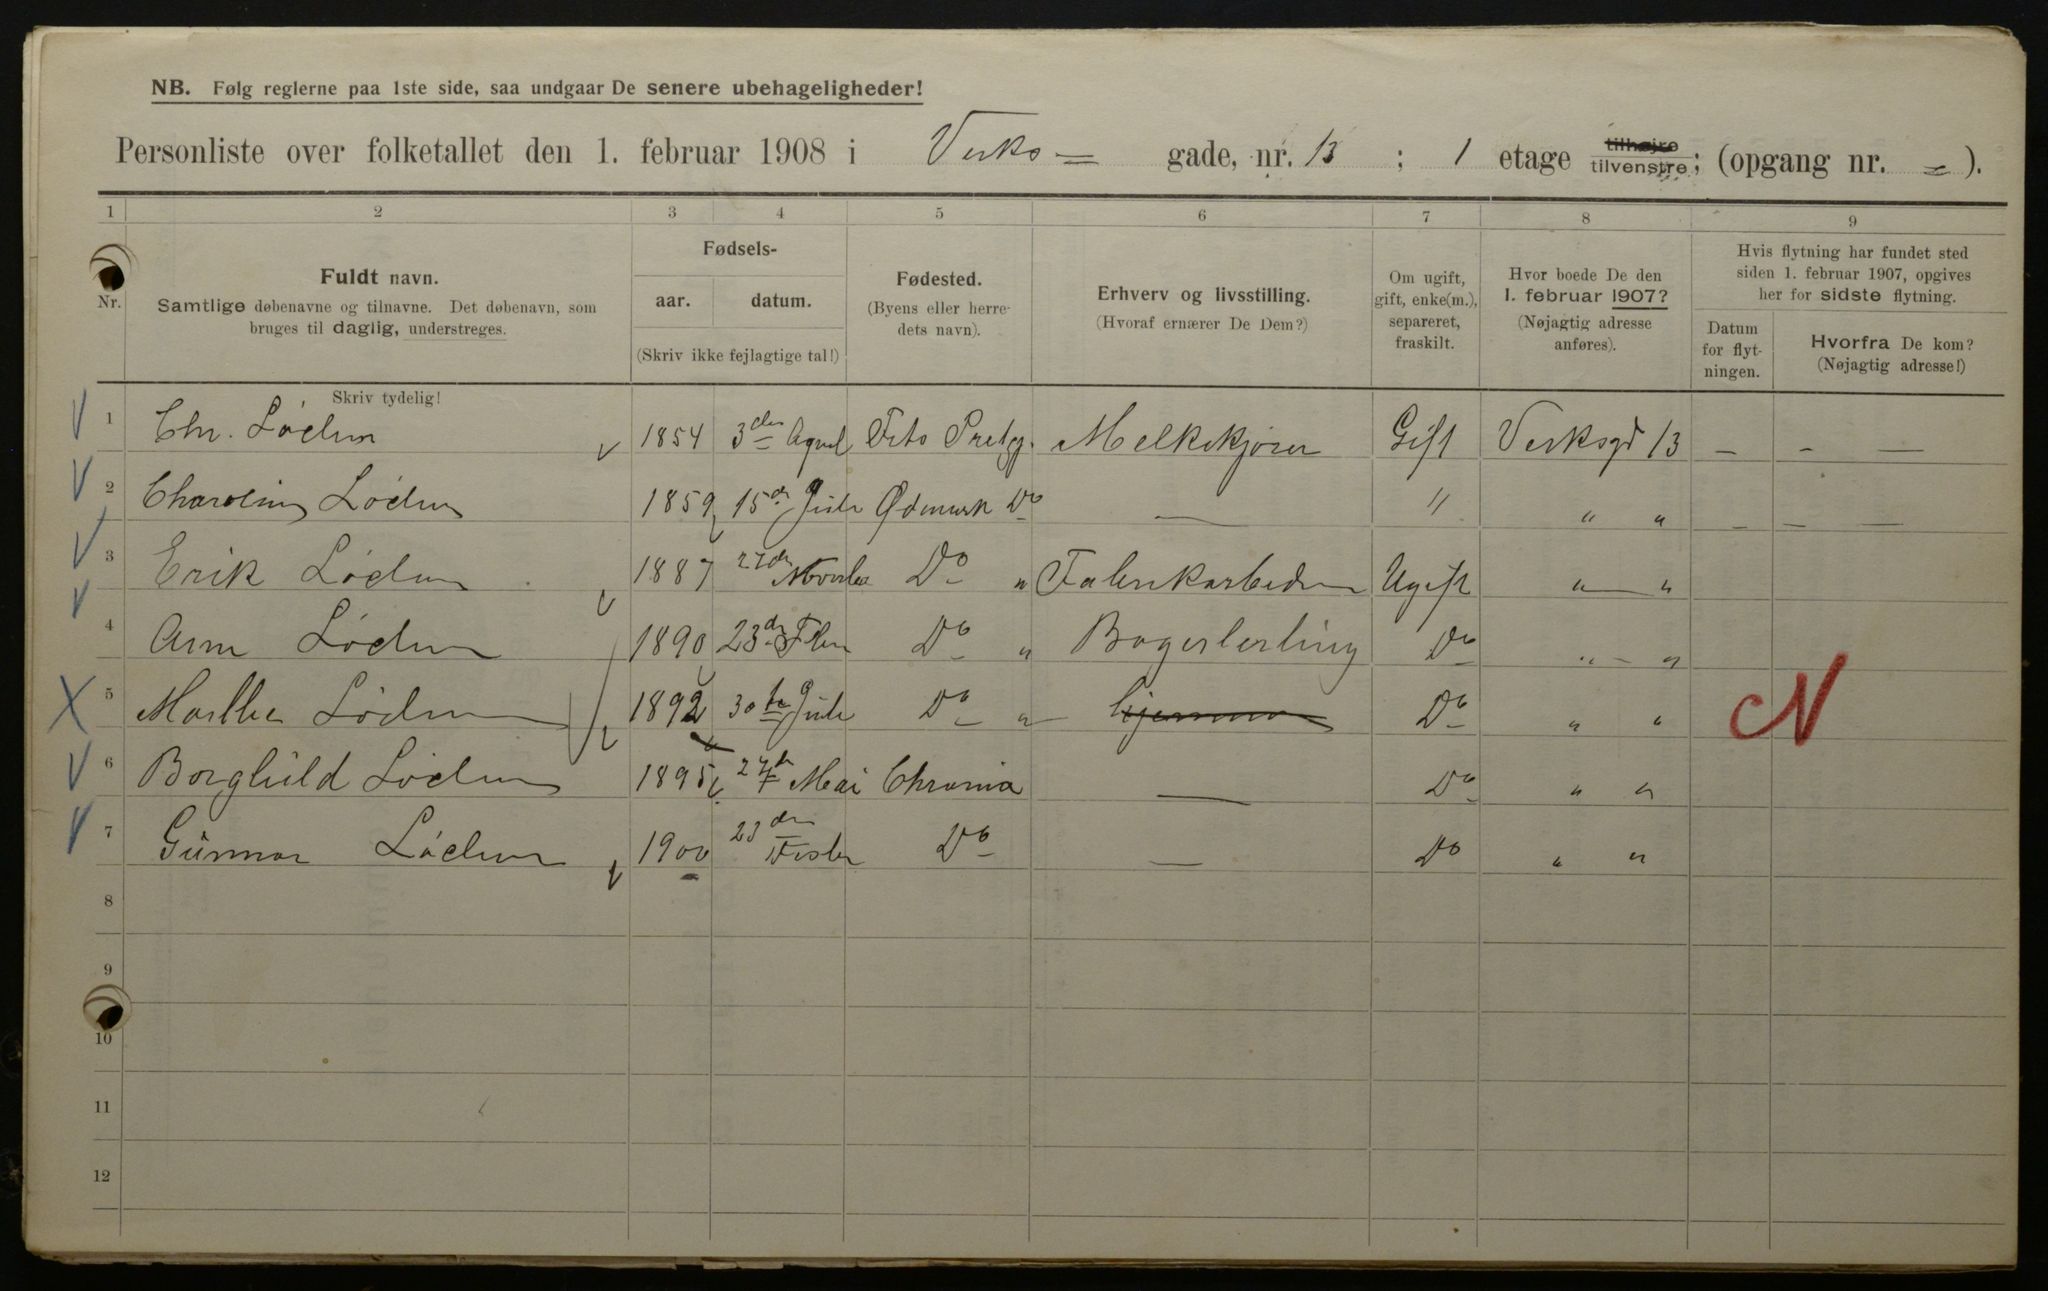 NB. Følg reglerne paa 1ste side, saa undgaar De senere ubehageligheder!
Personliste over folketallet den 1. februar 1908 i Verks= gade, nr. 13 ; 1 etage tilhøjre tilvenstre; (opgang nr. = ).
1 2 3 4 5 6 7 8 9
Nr.
Fuldt navn.
Samtlige døbenavne og tilnavne. Det døbenavn, som
bruges til daglig, understreges.
Skriv tydelig!
Fødsels-
aar. datum.
(Skriv ikke fejlagtige tal!)
Fødested.
(Byens eller herre-
dets navn).
Erhverv og livsstilling.
(Hvoraf ernærer De Dem?)
Om ugift,
gift, enke(m.),
separeret,
fraskilt.
Hvor boede De den
1. februar 1907?
(Nøjagtig adresse
anføres).
Hvis flytning har fundet sted
siden 1. februar 1907, opgives
her for sidste flytning.
Datum
for flyt-
ningen.
Hvorfra De kom?
(Nøjagtig adresse!)
1 Chr. Lödun 1854 3die April Mælkekjører Gift Verksgd 13 — — —
2 Lödun 1859 15de Juli Ødemark Do — " " " — — —
3 Erik Lödun 1887 27de Novbr Do " Fabrikarbeder Ugift " — "
4 Lödun 1890 23de Febr Do " Bagerlerling Do " — "
5 Lödun 1892 30te Juli Do " Hjemme Do " " N
6 Borghild Lödun 1895 27de Mai Chrania — Do " "
7 Günnar Lödun 1900 23de Do — Do " "
8
9
10
11
12